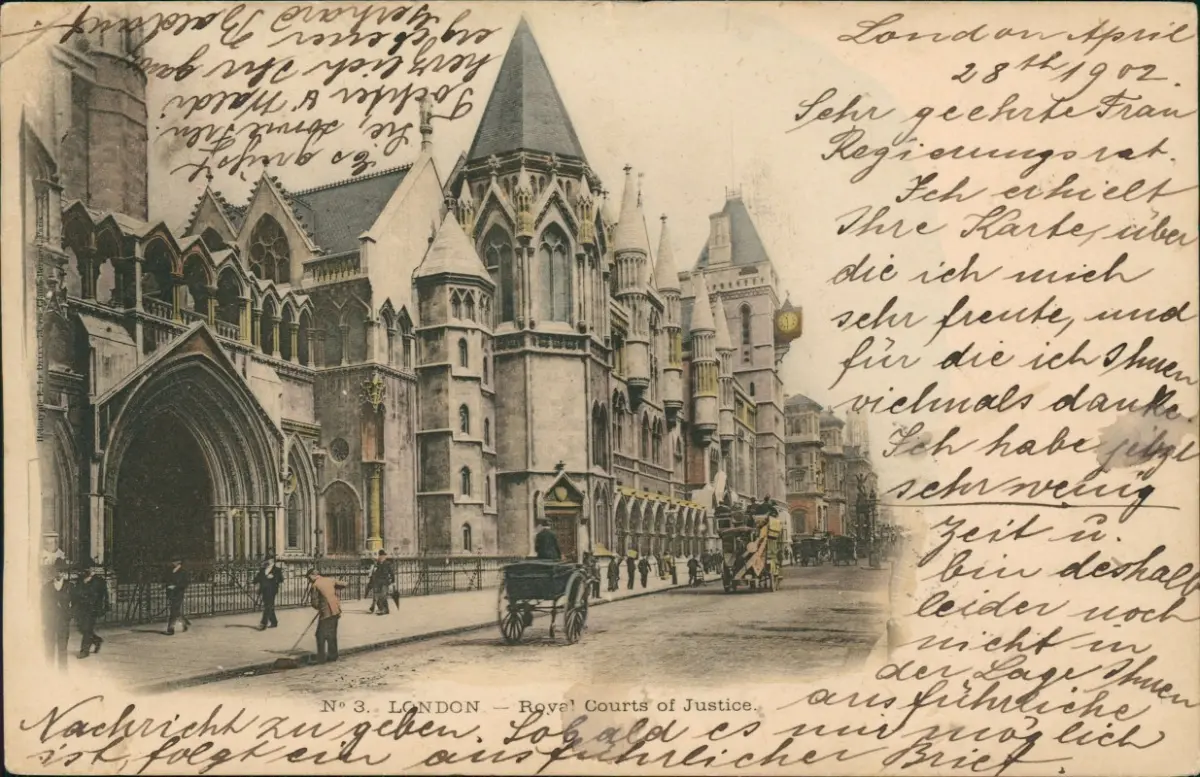 London April
28th 1902.
Sehr geehrte Frau
Regierungsrat.
Ich erhielt
Ihre Karte, über
die ich mich
sehr freute, und
für die ich Ihnen
vielmals danke.
Ich habe jetzt
sehr wenig
Zeit u.
bin deshalb
leider noch
nicht in
der Lage Ihnen
ausführliche
Nachricht zu geben. Sobald es nur möglich
ist, folgt ein ausführlicher Brief.
Es grüsst
Sie, sowie Frln.
Tochter & Waldi
herzlich Ihr ganz
ergebener
Gerhard
No 3. LONDON — Royal Courts of Justice.